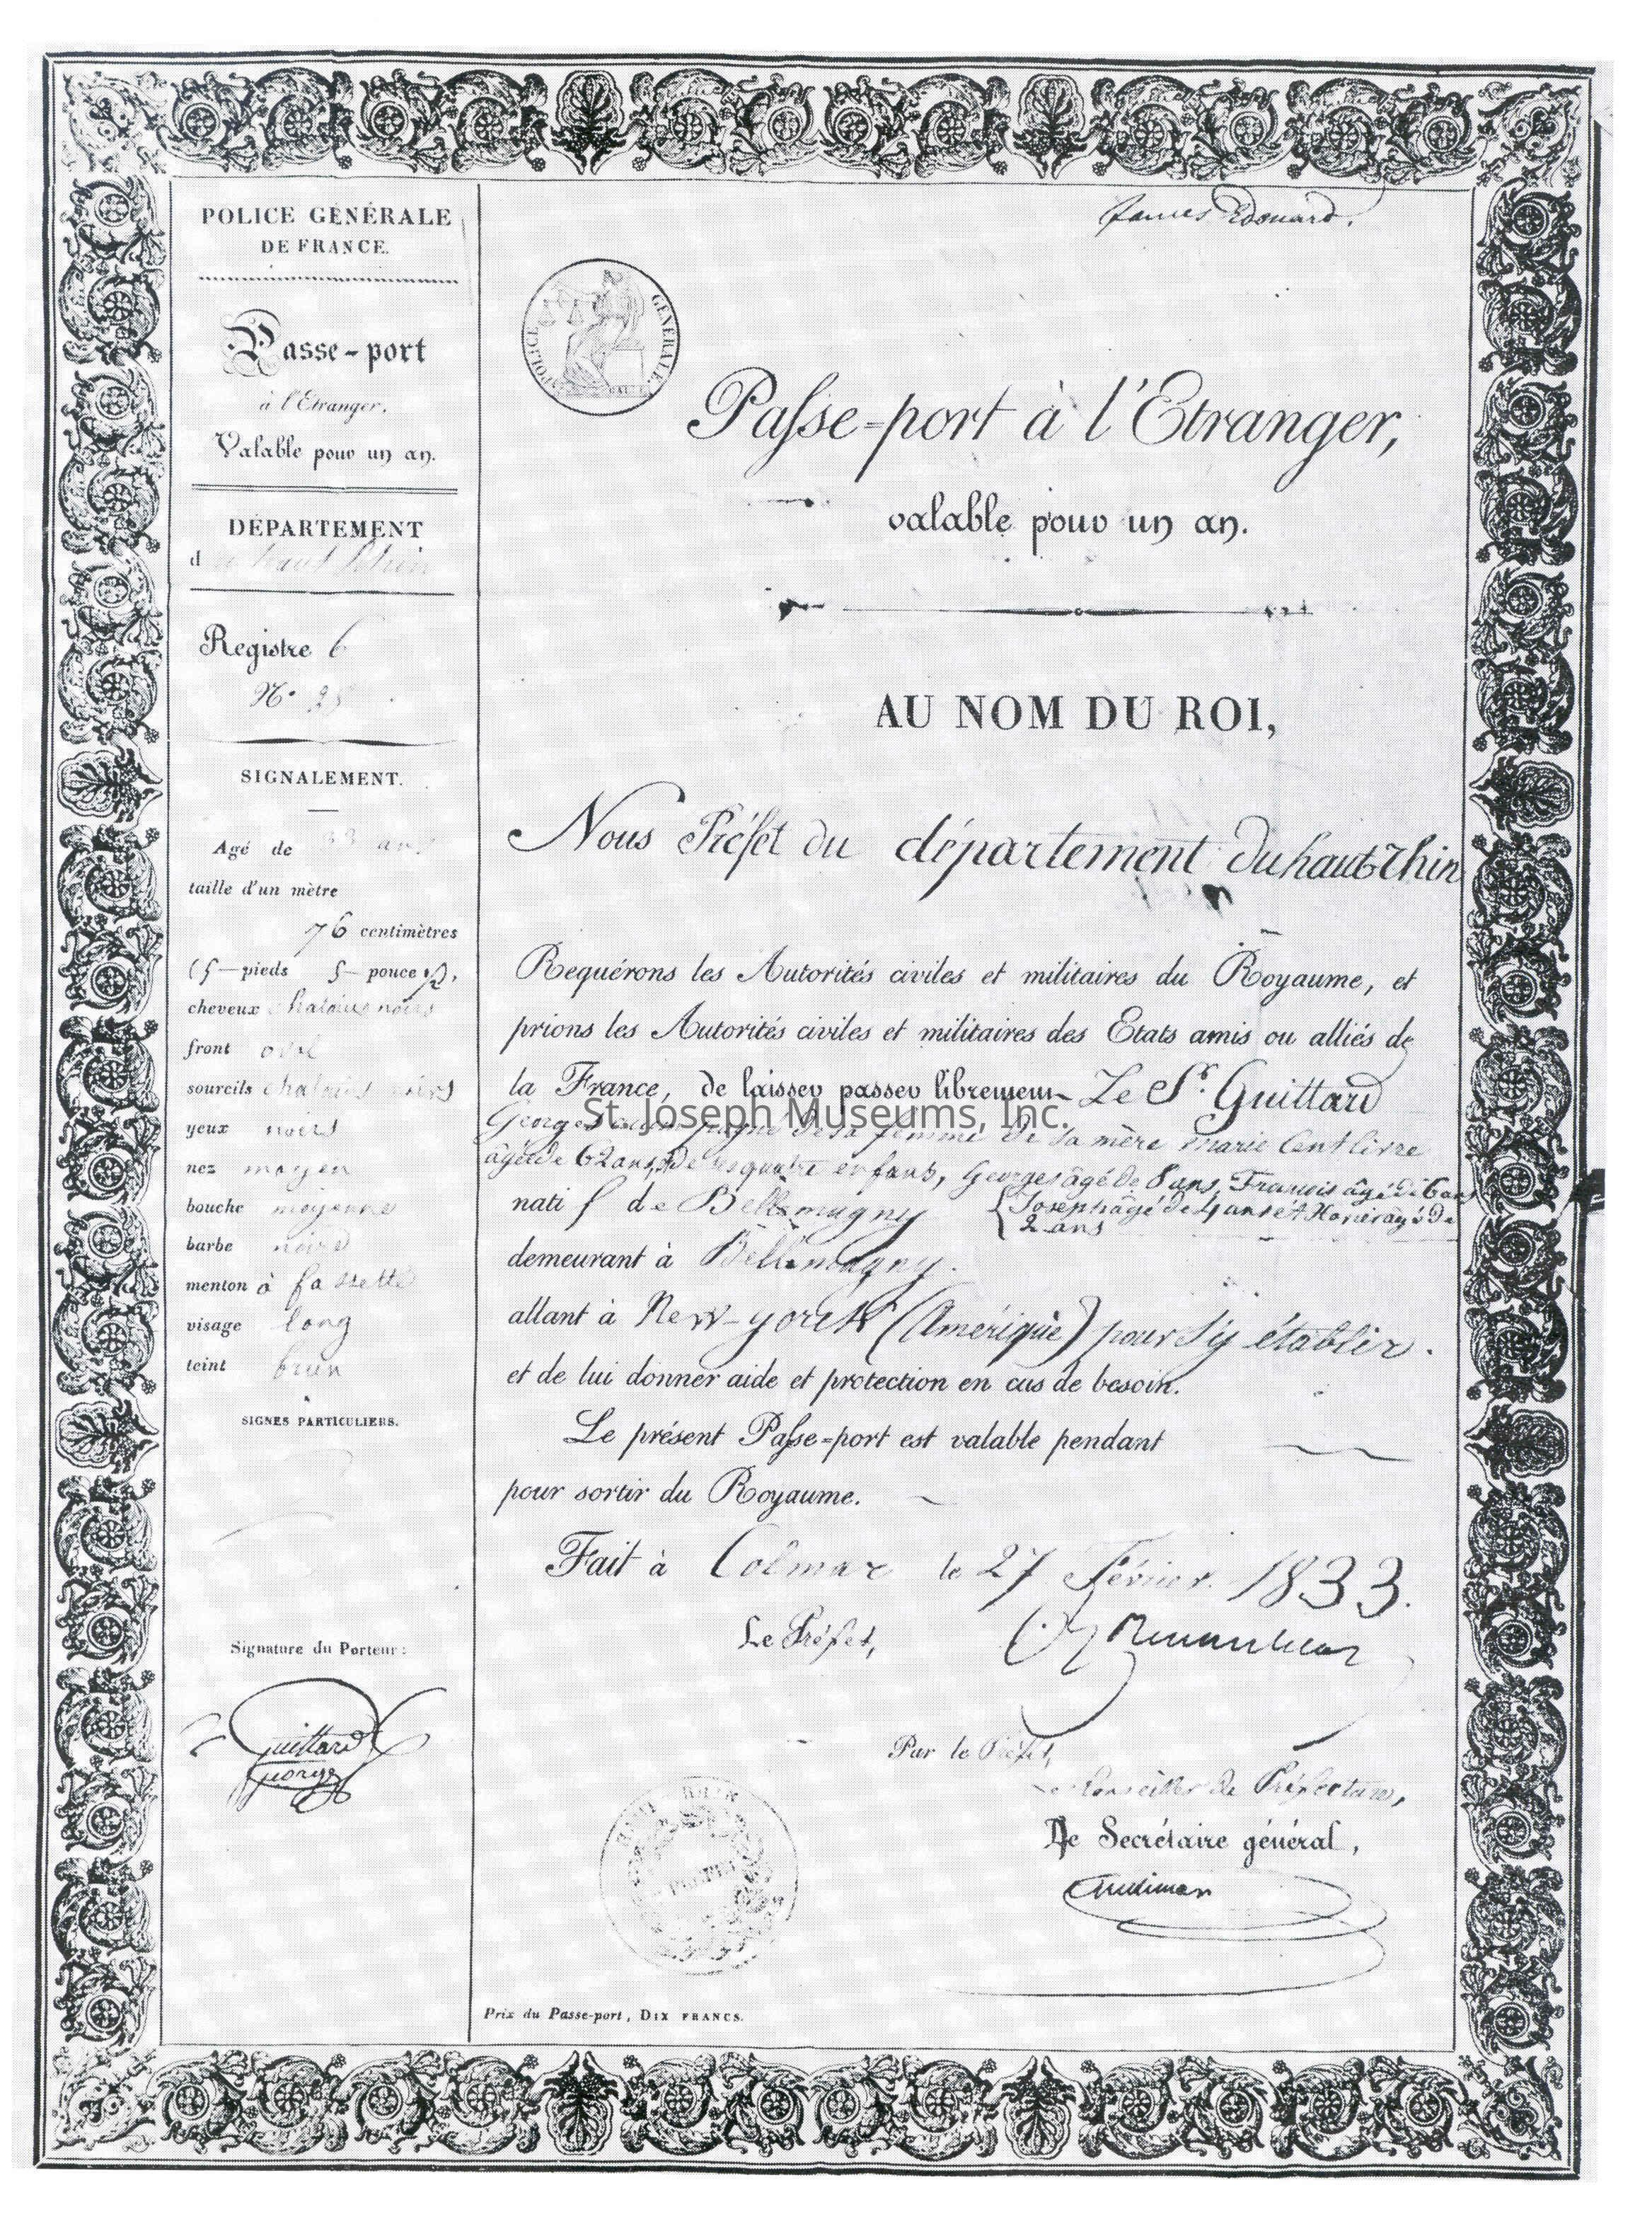 POLICE GÉNÉRALE
DE FRANCE.
Passe-port
à l'Etranger.
Valable pour un an.
DÉPARTEMENT
du haut Rhin
Registre 6
N°
SIGNALEMENT.
Agé de 33 ans
taille d'un mètre
76 centimètres
(5 pieds 5 pouces ½).
cheveux chatains noirs
front oval
sourcils chatains noirs
yeux noirs
nez moyen
bouche moyenne
barbe noire
menton à fossette
visage long
teint brun
SIGNES PARTICULIERS.
Signature du Porteur :
Guittard
Georges
James Edouard.
POLICE GÉNÉRALE.
Passe-port à l'Etranger,
valable pour un an.
AU NOM DU ROI,
Nous Préfet du département du haut-Rhin
Requérons les Autorités civiles et militaires du Royaume, et
prions les Autorités civiles et militaires des Etats amis ou alliés de
la France, de laisser passer librement Le Sr. Guittard
St. Joseph Museums, Inc.
Georges de sa femme de sa mère marie Centlivre
âgée de 62 ans, de ses quatre enfants, Georges âgé de 8 ans, Francois âgé de 6 ans
Joseph âgé de 4 ans et âgé de
2 ans
natif de Bellemagny
demeurant à Bellemagny.
allant à New-yorck (Amérique) pour s'y établir.
et de lui donner aide et protection en cas de besoin.
Le présent Passe-port est valable pendant
pour sortir du Royaume.
Fait à Colmar le 27 Février 1833.
Le Préfet,
Par le Préfet,
Le Conseiller de Préfecture,
Le Secrétaire général,
Prix du Passe-port, DIX FRANCS.